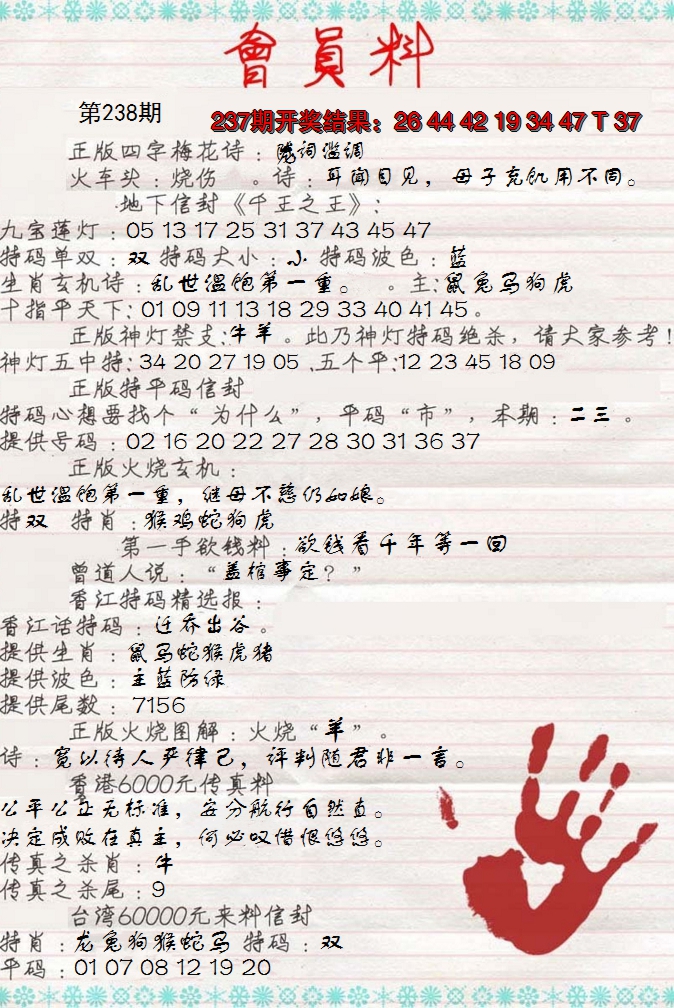 會員料
第238期
237期开奖结果：26 44 42 19 34 47 T 37
正版四字梅花诗：陈词滥调
火车头：烧伤 。诗：耳闻目见，母子充饥用不同。
地下信封《千王之王》：
九宝莲灯：05 13 17 25 31 37 43 45 47
特码单双：双 特码大小：小 特码波色：蓝
生肖玄机诗：乱世温饱第一重。 。主：鼠兔马狗虎
十指平天下：01 09 11 13 18 29 33 40 41 45。
正版神灯禁支：牛羊。此乃神灯特码绝杀，请大家参考！
神灯五中特：34 20 27 19 05 .五个平：12 23 45 18 09
正版特平码信封
特码心想要找个“为什么”，平码“市”，本期：二三。
提供号码：02 16 20 22 27 28 30 31 36 37
正版火烧玄机：
乱世温饱第一重，继母不慈仍如娘。
特双 特肖：猴鸡蛇狗虎
第一手欲钱料：欲钱看千年等一回
曾道人说：“盖棺事定？”
香江特码精选报：
香江话特码：迁乔出谷。
提供生肖：鼠马蛇猴虎猪
提供波色：主蓝防绿
提供尾数：7156
正版火烧图解：火烧“羊”。
诗：宽以待人严律己，评判随君非一言。
香港6000元传真料
公平公正无标准，安分航行自然直。
决定成败在真主，何必叹惜恨悠悠。
传真之杀肖：牛
传真之杀尾：9
台湾60000元来料信封
特肖：龙兔狗猴蛇马 特码：双
平码：01 07 08 12 19 20